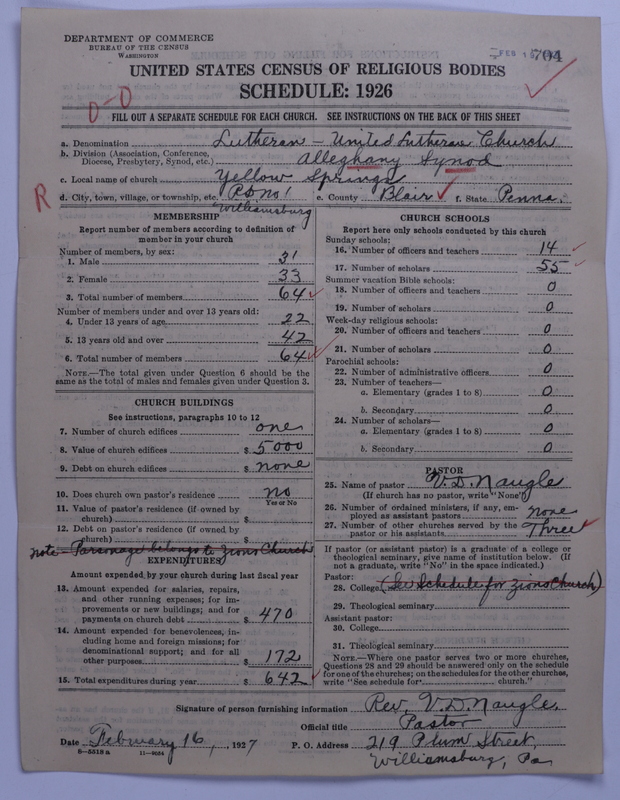 DEPARTMENT OF COMMERCE
BUREAU OF THE CENSUS
WASHINGTON
FEB 18
704
UNITED STATES CENSUS OF RELIGIOUS BODIES
SCHEDULE: 1926
0-0
FILL OUT A SEPARATE SCHEDULE FOR EACH CHURCH. SEE INSTRUCTIONS ON THE BACK OF THIS SHEET
a. Denomination Lutheran - United Lutheran Church
b. Division (Association, Conference, Diocese, Presbytery, Synod, etc.) Alleghany Synod
c. Local name of church Yellow Springs
R
d. City, town, village, or township, etc. RD no. 1 Williamsburg e. County Blair f. State Penna.
MEMBERSHIP
Report number of members according to definition of
member in your church
Number of members, by sex:
1. Male 31
2. Female 33
3. Total number of members 64
Number of members under and over 13 years old:
4. Under 13 years of age 22
5. 13 years old and over 42
6. Total number of members 64
NOTE.—The total given under Question 6 should be
same as the total of males and females given under Question 3.
CHURCH BUILDINGS
See instructions, paragraphs 10 to 12
7. Number of church edifices one
8. Value of church edifices $ 5000
9. Debt on church edifices $ none
10. Does church own pastor's residence no
Yes or No
11. Value of pastor's residence (if owned by
church) $
12. Debt on pastor's residence (if owned by
church) $
note - Parsonage belongs to Zions Church
EXPENDITURES
Amount expended by your church during last fiscal year
13. Amount expended for salaries, repairs,
and other running expenses; for im-
provements or new buildings; and for
payments on church debt $ 470
14. Amount expended for benevolences, in-
cluding home and foreign missions; for
denominational support; and for all
other purposes $ 172
15. Total expenditures during year $ 642
CHURCH SCHOOLS
Report here only schools conducted by this church
Sunday schools:
16. Number of officers and teachers 14
17. Number of scholars 55
Summer vacation Bible schools:
18. Number of officers and teachers 0
19. Number of scholars 0
Week-day religious schools:
20. Number of officers and teachers 0
21. Number of scholars 0
Parochial schools:
22. Number of administrative officers 0
23. Number of teachers—
a. Elementary (grades 1 to 8) 0
b. Secondary 0
24. Number of scholars—
a. Elementary (grades 1 to 8) 0
b. Secondary 0
PASTOR
25. Name of pastor V. D. Naugle
(If church has no pastor, write "None")
26. Number of ordained ministers, if any, em-
ployed as assistant pastors none
27. Number of other churches served by the
pastor or his assistants Three
If pastor (or assistant pastor) is a graduate of a college or
theological seminary, give name of institution below. (If
not a graduate, write "No" in the space indicated.)
Pastor:
28. College (See Schedule for Zions Church)
29. Theological seminary
Assistant pastor:
30. College
31. Theological seminary
NOTE.—Where one pastor serves two or more churches,
Questions 28 and 29 should be answered only on the schedule
for one of the churches; on the schedules for the other churches,
write "See schedule for church."
Signature of person furnishing information Rev. V. D. Naugle,
Official title Pastor
Date February 16, 1927 P. O. Address 219 Plum Street,
8—5518a 11—9054 Williamsburg, Pa.